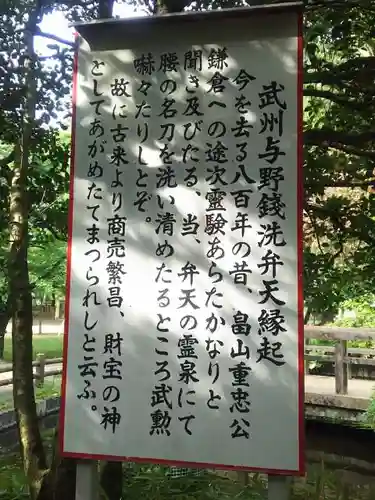 武州与野銭洗弁天縁起
今を去る八百年の昔、畠山重忠公
鎌倉への途次霊験あらたかなりと
聞き及びたる、当、弁天の霊泉にて
腰の名刀を洗い清めたるところ武勲
嚇々たりしとぞ。
故に古来より商売繁昌、財宝の神
としてあがめたてまつられしと云ふ。